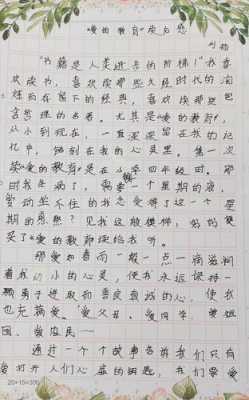 "爱的教育"读后感
刘杨
"书籍是人类进步的阶梯!"我喜
欢读书,喜欢读那些久经时代的淘
炼而存留下的经典,喜欢读那些包
含哲理的名著。尤其是"爱的教育",
从小到现在,一直深深留在我的记
忆中,烙刻在我的心灵里。第一次
读"爱的教育"是在小学四年级。那
时我生病了,需要一个星期的
爱动坐不住的我怎受得了这一个星
期的 ?见我这般模样,妈妈便
买了"爱的教育"读给我听。
那爱如春雨一般一点一滴滋润
着我幼小的心灵,使我永远保持一
颗勇于进取而善良真诚的心,使我
也充满爱。爱父母、爱同学、爱祖
国、爱人民……
通过一个个故事告诉我们只有
爱打开人们心蓝的钥匙,我们要爱
20×15=300